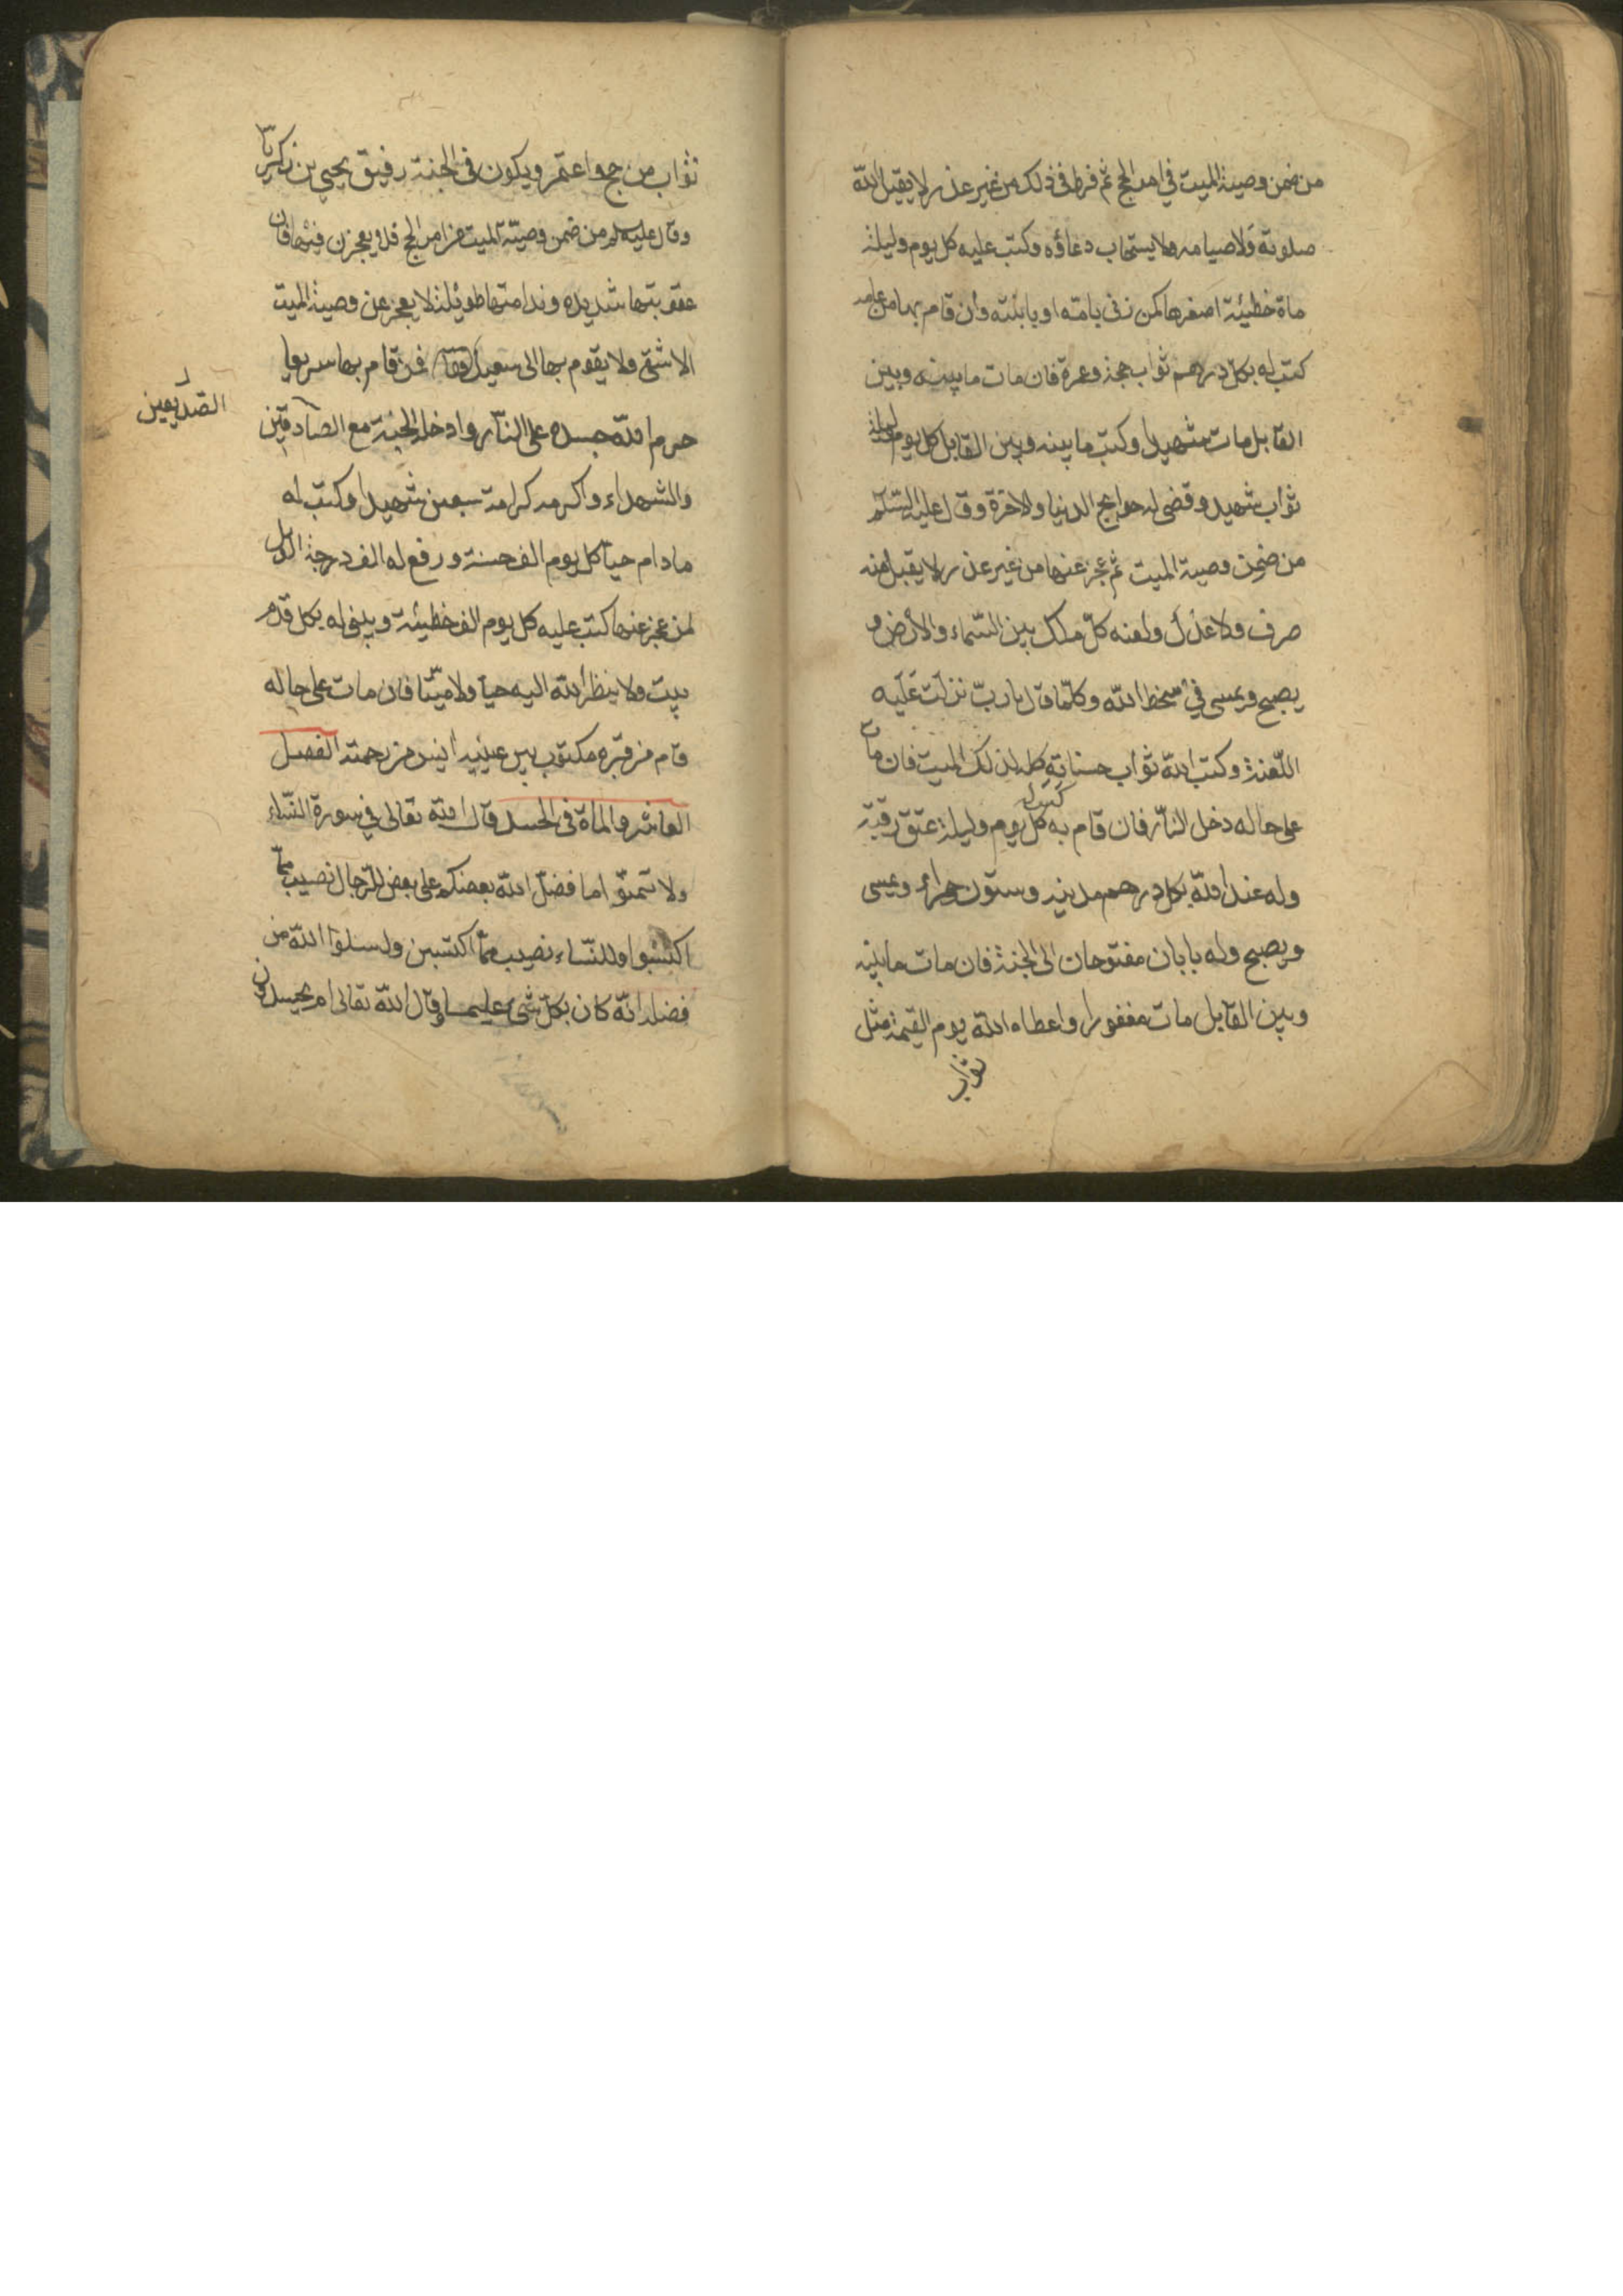 من ضمن وصية الميت في امر الحج ثم فرط في ذلك من غير عذر لا يقبل الله
صلوته ولا صيامه ولا يستجاب دعاؤه وكتب عليه كل يوم وليلة
ماة خطيئة اصغرها كمن زنى بامّه او بابنته وان قام بها من عامه
كتب له بكل درهم ثواب حجة وعمرة فان مات ما بينه وبين
القابل مات شهيدا وكتب ما بينه وبين القابل كل يوم وليلة
ثواب شهيد وقضى له حوايج الدنيا والاخرة وقال عليه السّلم
من ضمن وصية الميت ثم عجز عنها من غير عذر لا يقبل منه
صرف ولا عدل ولعنه كلّ ملك بين السّماء والأرض و
يصبح ويمسى في سخط الله وكلّما قال يا ربّ نزلت عليه
اللّعنة وكتب الله ثواب حسناته كله لذلك الميت فان مات
على حاله دخل النّار فان قام به كتب له كل يوم وليلة عتق رقبة
وله عند الله بكل درهم مدينة وستون حوراء ويمسى
ويصبح وله بابان مفتوحان الى الجنة فان مات ما بينه
وبين القابل مات مغفورا واعطاه الله يوم القيمة مثل
ثواب
ثواب من حج واعتمر ويكون في الجنة رفيق يحيى بن زكريا
وقال عليه سلم من ضمن وصيّة الميت من امر الحج فلا يعجزن فيها فان
عقوبتها شديده وندامتها طويلة لا يعجز عن وصية الميت
الا شقى ولا يقوم بها الى سعيد فمن قام بها سريعا
حرم الله جسده على النّار وادخله الجنة مع الصادقين
الصّديقين
والشهداء واكرمه كرامة سبعين شهيدا وكتب له
ما دام حيا كل يوم الف حسنة ورفع له الف درجة الويل
لمن عجز عنها كتب عليه كل يوم الف خطيئة ويبنى له بكل قدم
بيت ولا ينظر الله اليه حيا ولا ميّتا فان مات على حاله
قام من قبره مكتوب بين عينيه أيس من رحمته الفصل
العاشر والماة في الحسد قال الله تعالى في سورة النّساء
ولا تتمنّوا ما فضّل الله بعضكم على بعض للرّجال نصيب ممّا
اكتسبوا وللنّساء نصيب ممّا اكتسبن وسلوا الله من
فضله انّه كان بكلّ شئ عليما وقال الله تعالى ام يحسدون